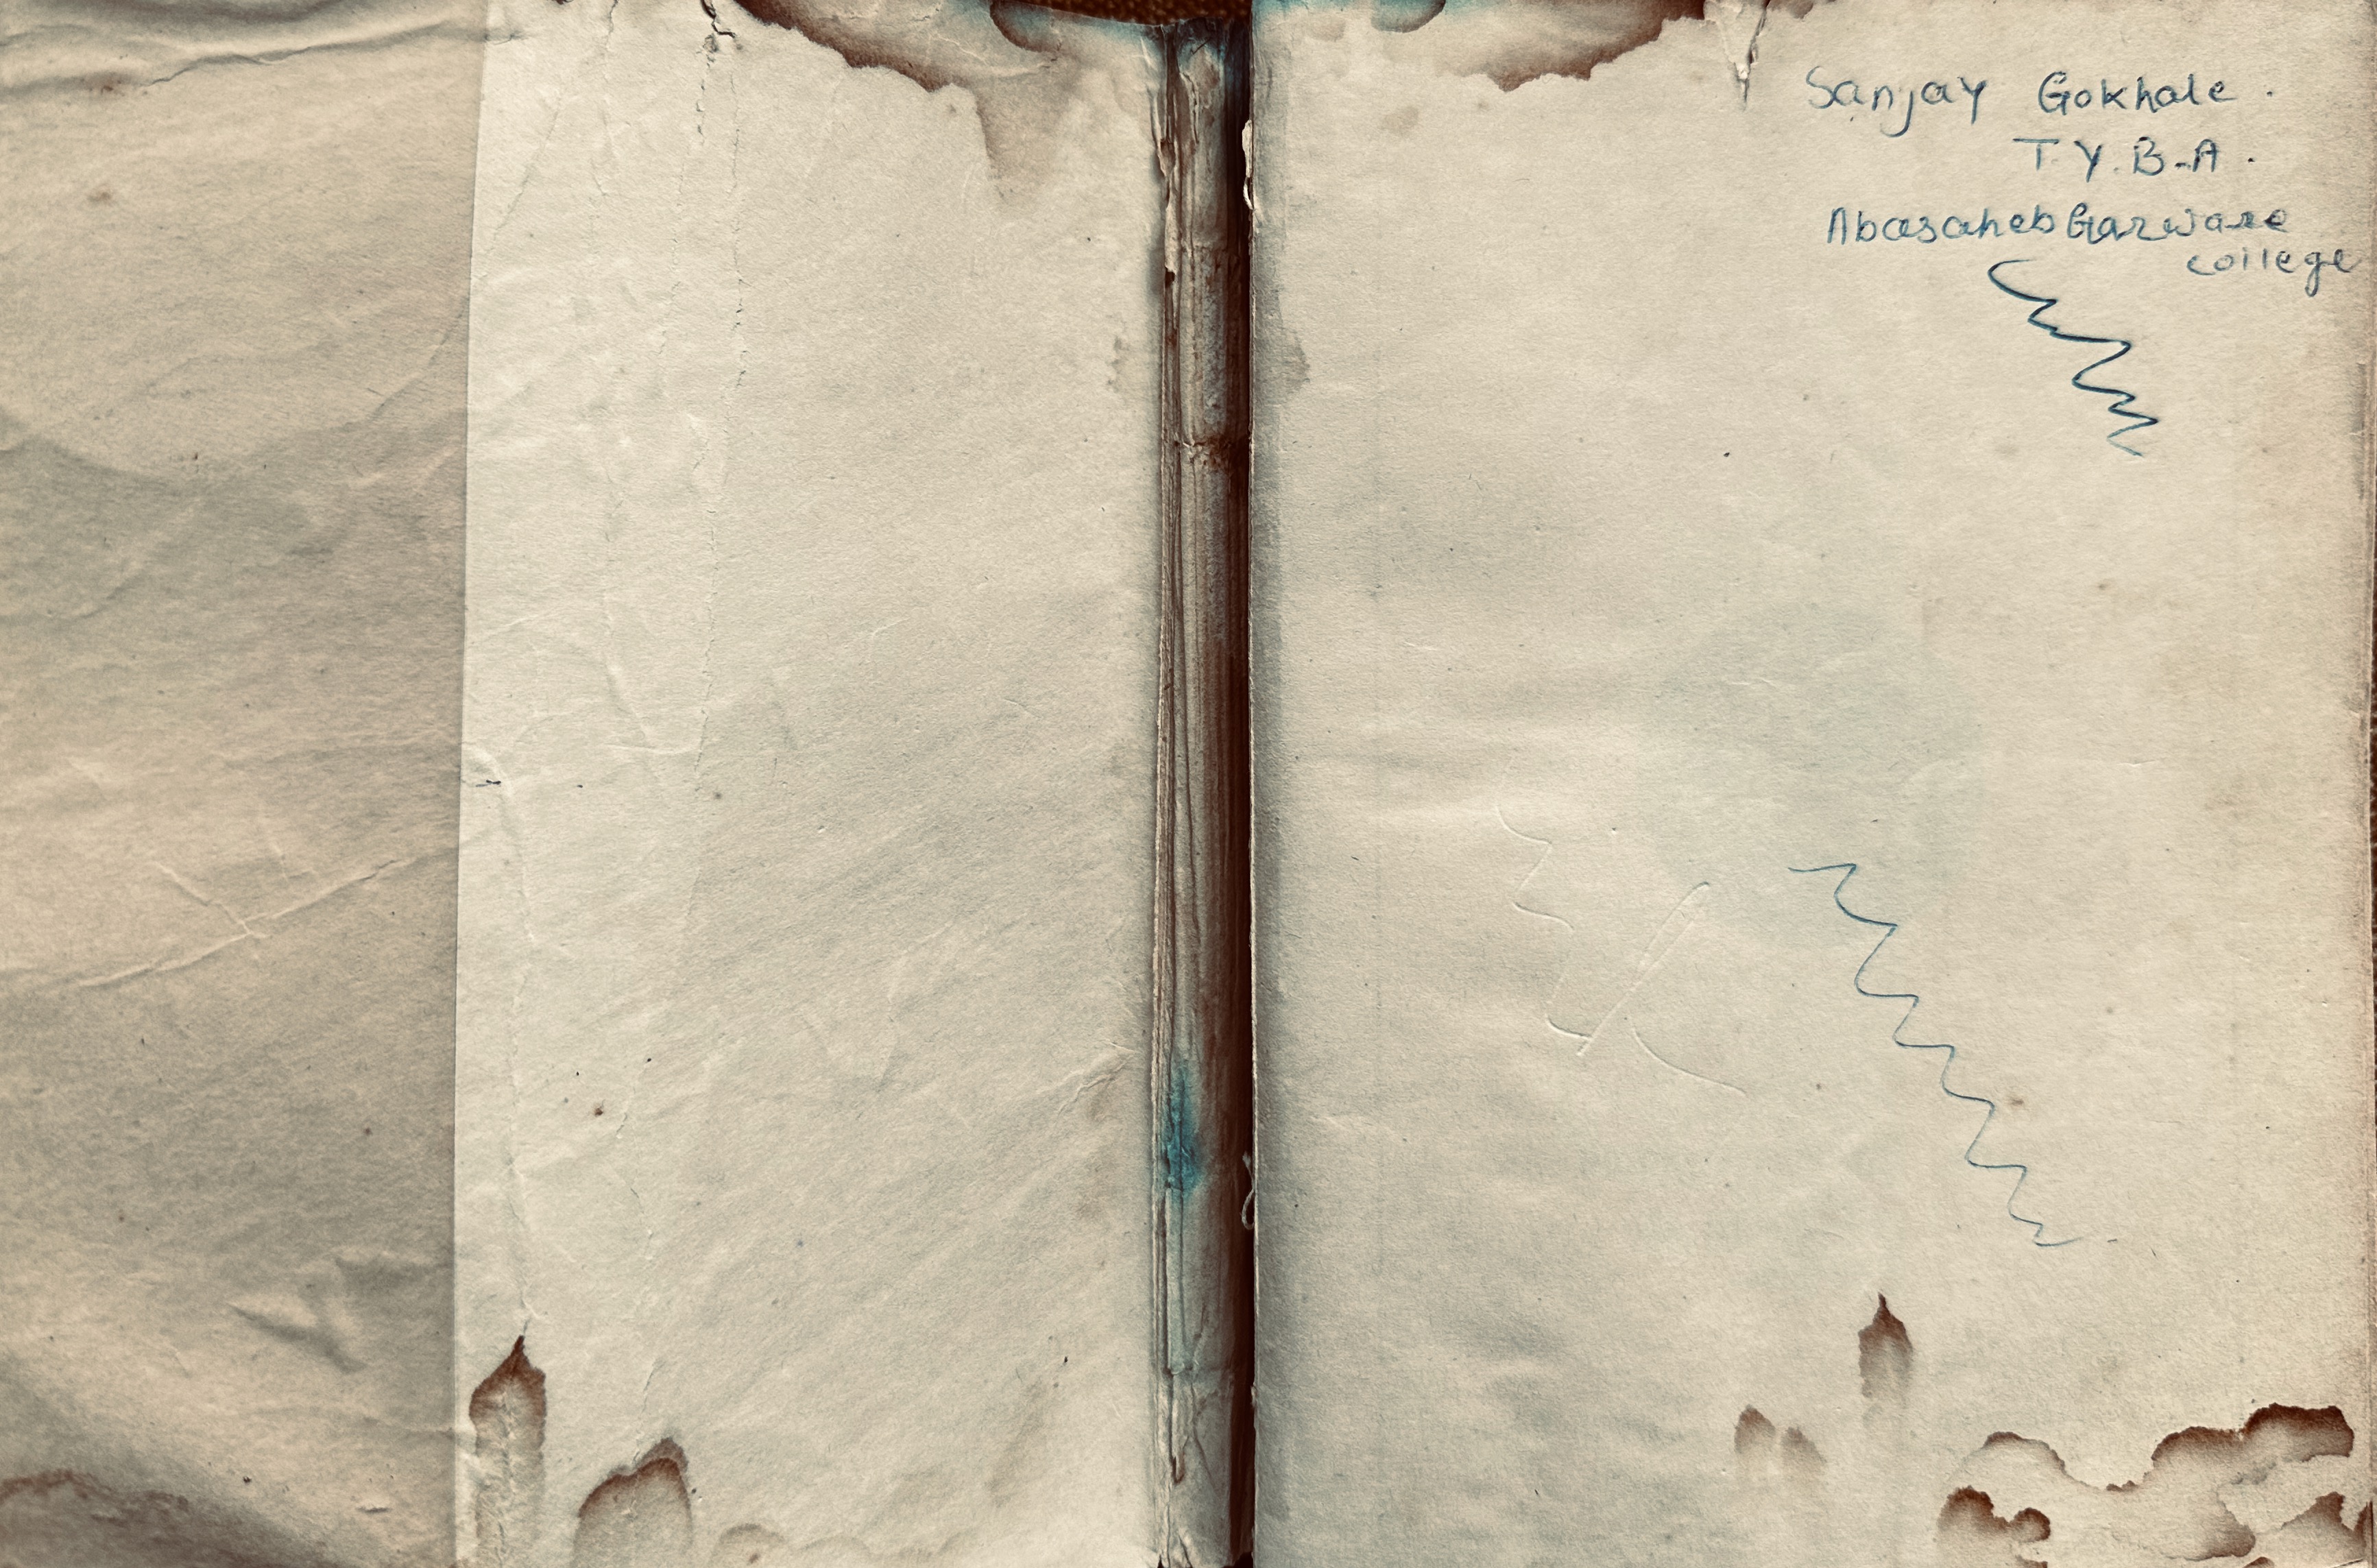 Sanjay Gokhale.
T.Y.B.A.
Abasaheb Garware
college